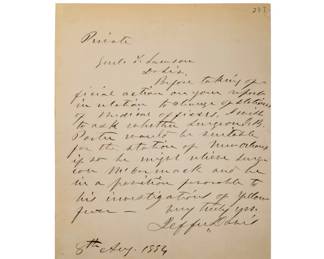 Private
Genl. T. Lawson
Dr. Sir,
Before taking of-
ficial action on your report
in relation to change of stations
of medical officers, I wish
to ask whether Surgeon
Porter would be suitable
for the station of New Orleans
if so he might relieve Surg-
eon McCormack and be
in a position favorable to
his investigations of Yellow
fever —
very truly yrs
Jeffer. Davis
8th Aug. 1854